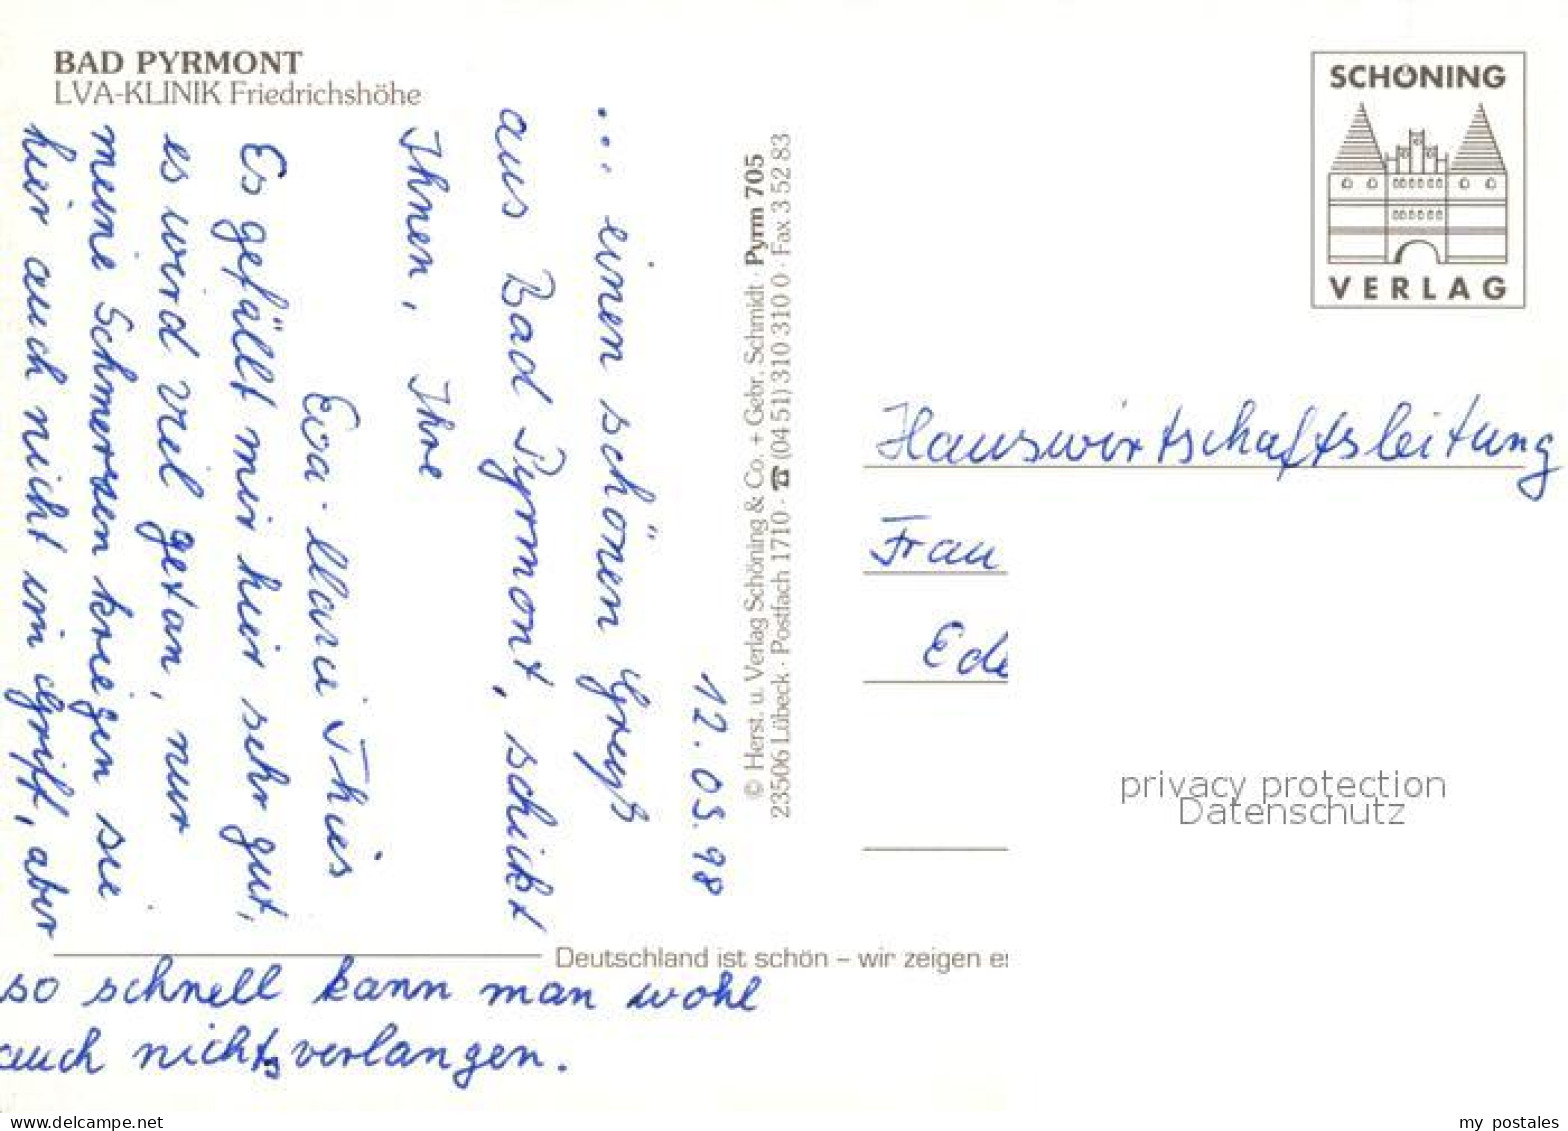 BAD PYRMONT
LVA-KLINIK Friedrichshöhe
12.05.98
... einen schönen Gruß
aus Bad Pyrmont, schickt
Ihnen, Ihre
Eva-Marie Thies
Es gefällt mir hier sehr gut,
es wird viel getan, nur
meine Schmerzen kriegen sie
hier auch nicht im Griff, aber
so schnell kann man wohl
auch nichts verlangen.
© Herst. u. Verlag Schöning & Co. + Gebr. Schmidt · Pyrm 705
23506 Lübeck · Postfach 1710 · ☎ (04 51) 310 310 0 · Fax 3 52 83
Deutschland ist schön – wir zeigen es
SCHÖNING
VERLAG
Hauswirtschaftsleitung
Frau
Ede
privacy protection
Datenschutz
my postales